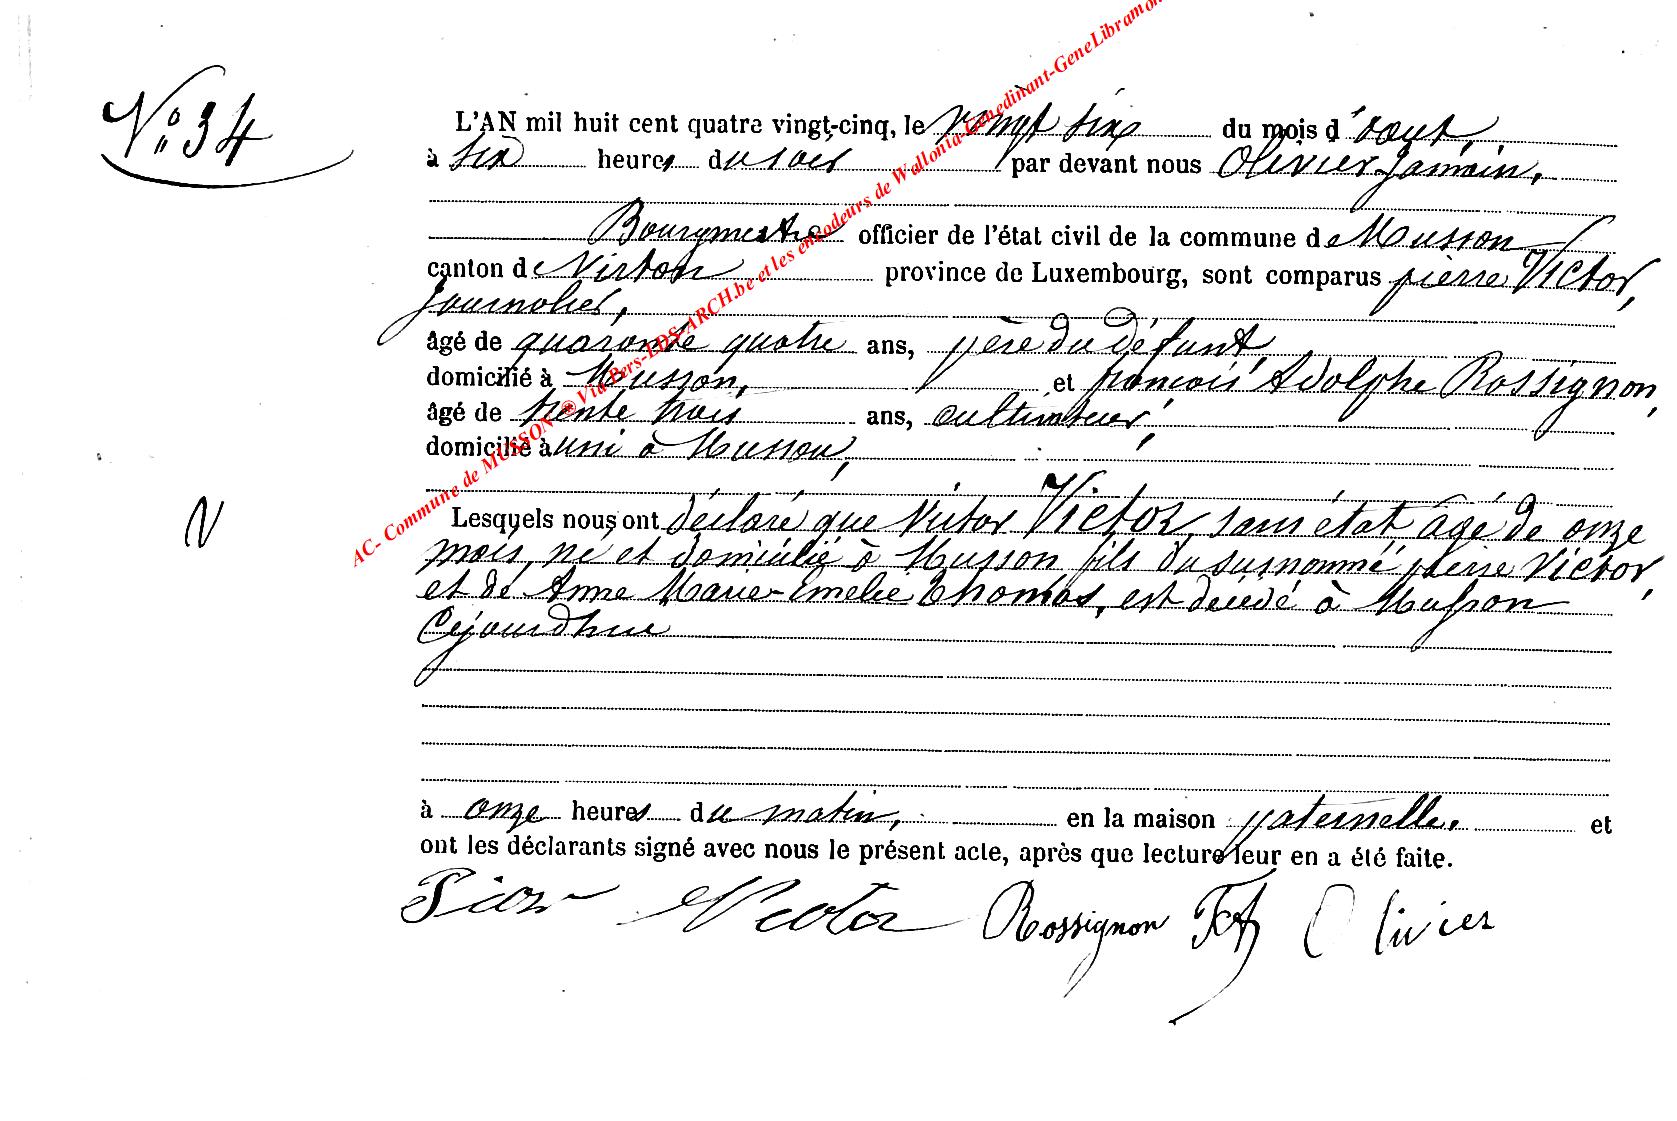 N° 34
L'AN mil huit cent quatre vingt-cinq, le vingt six du mois d'août,
à six heures du soir par devant nous Olivier Jamain,
Bourgmestre officier de l'état civil de la commune de Musson
canton de Virton province de Luxembourg, sont comparus pierre Victor,
journalier,
âgé de quarante quatre ans, père du défunt,
domicilié à Musson, et françois Adolphe Rossignon,
âgé de trente trois ans, cultivateur,
domicilié à Musson,
Lesquels nous ont déclaré que Victor Victor, sans état, âgé de onze
mois, né et domicilié à Musson fils du susnommé pierre Victor,
et de Anne Marie-Emelie Thomas, est décédé à Musson
Cejourdhui
à onze heures du matin, en la maison paternelle. et
ont les déclarants signé avec nous le présent acte, après que lecture leur en a été faite.
Victor Rossignon FA Olivier
V
AC- Commune de MUSSON ® Via Pers-LDS-ARCH.be et les encodeurs de Wallonia-Genedinant-GeneLibramon